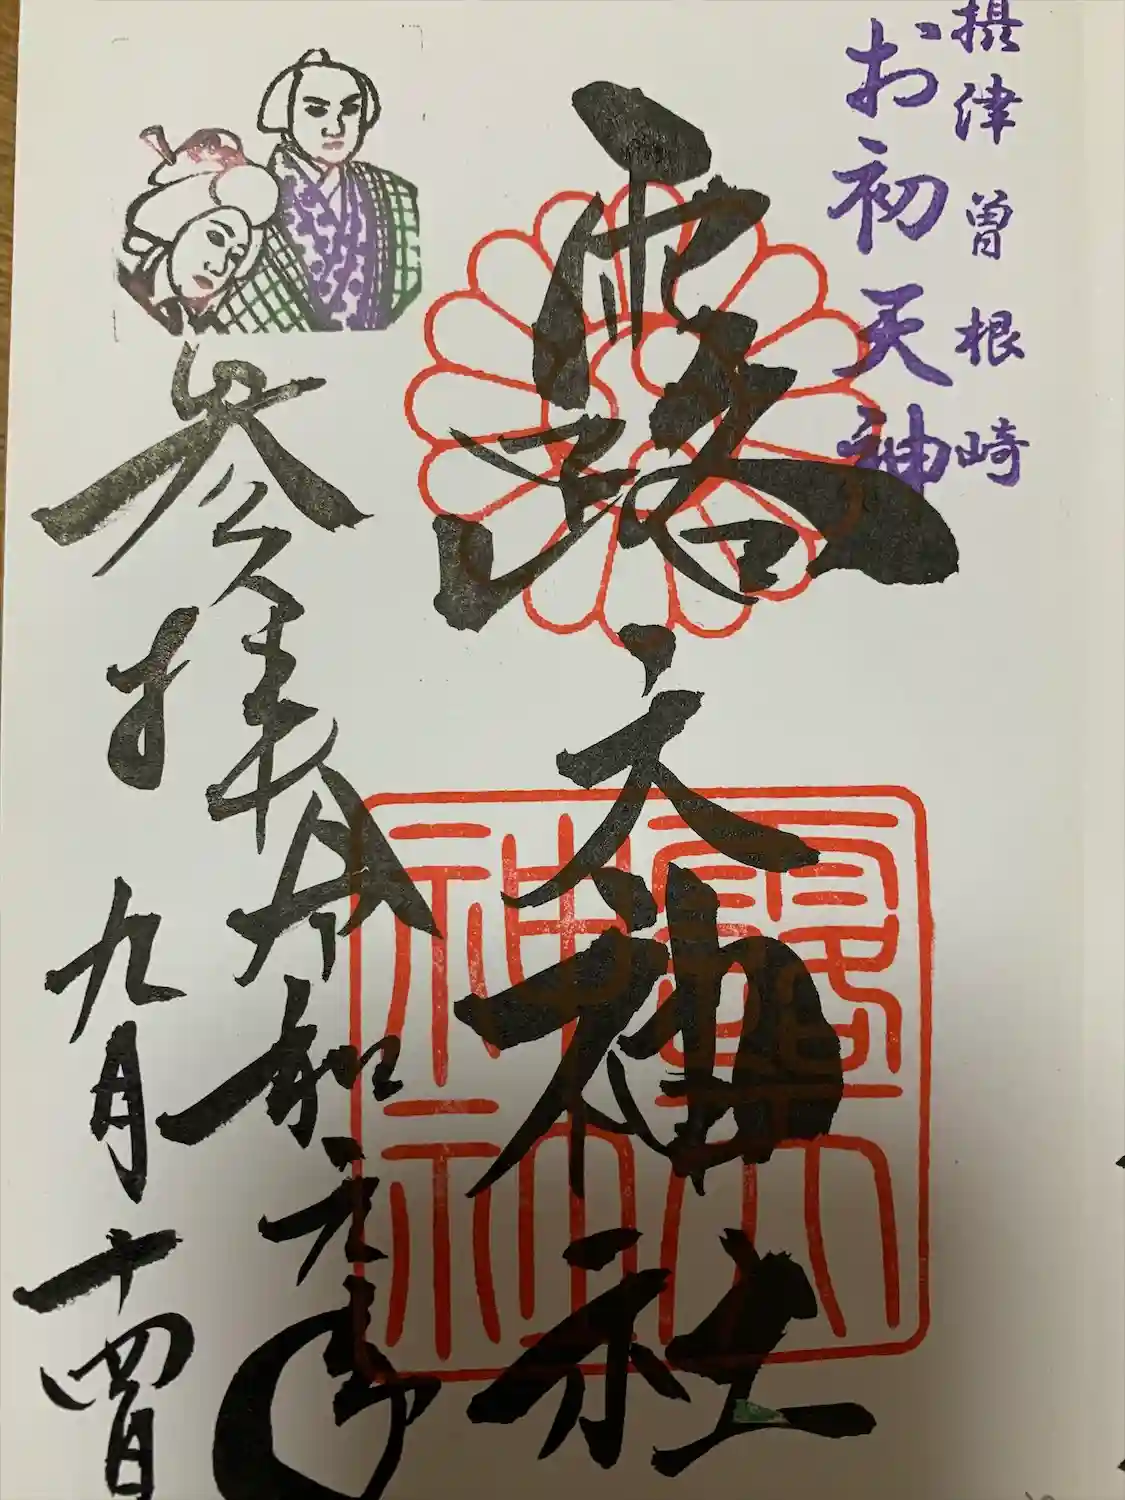 摂津曽根崎
お初天神
露天神社
露天神社
参拝
令和元年
九月十四日